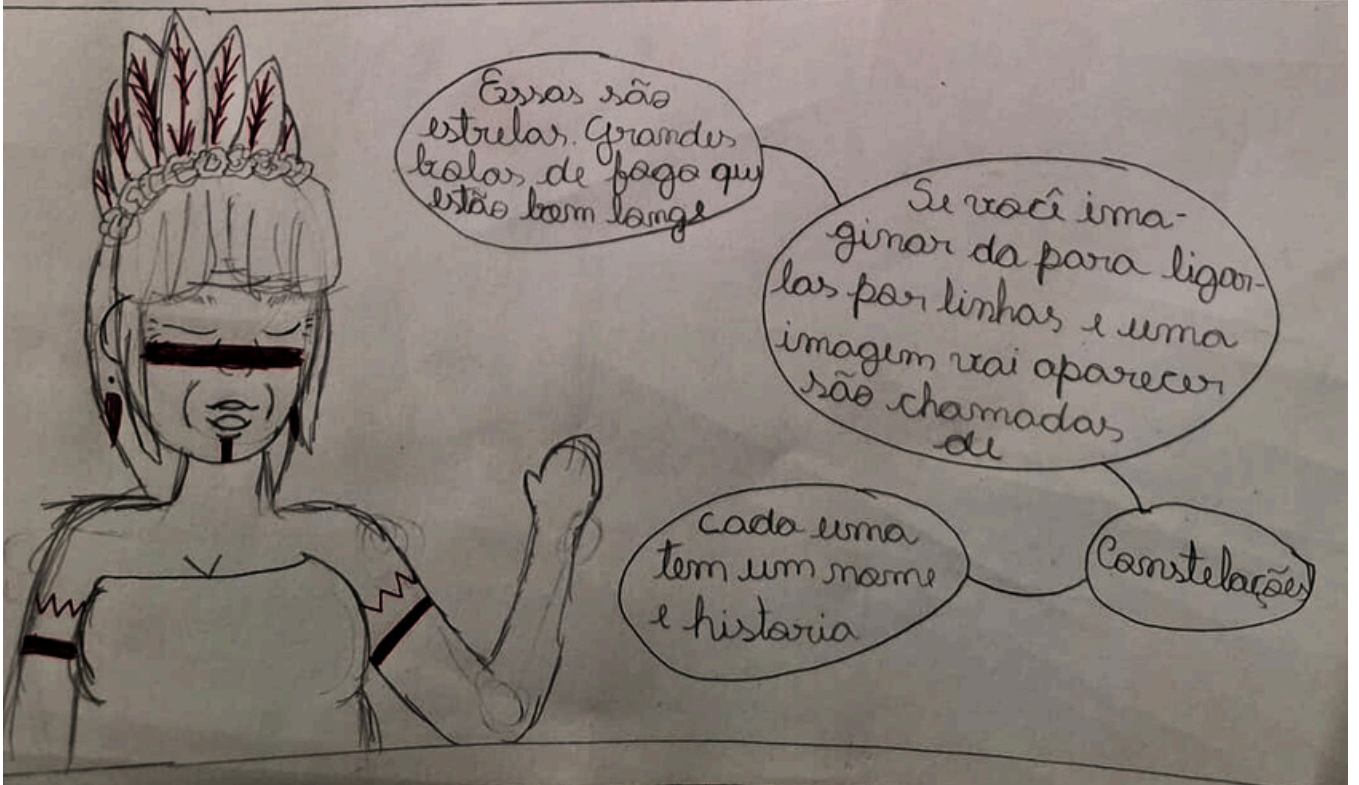 Essas são
estrelas. Grandes
bolas de fogo que
estão bem longe
Se você ima-
ginar da para ligar-
las por linhas e uma
imagem vai aparecer
são chamadas
de
Constelações
cada uma
tem um nome
e historia